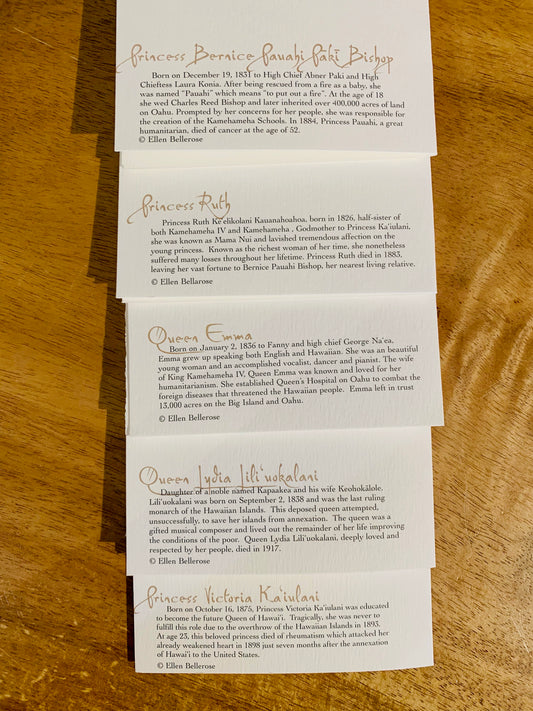 Princess Bernice Pauahi Pākī Bishop
Born on December 19, 1831 to High Chief Abner Paki and High
Chieftess Laura Konia. After being rescued from a fire as a baby, she
was named "Pauahi" which means "to put out a fire". At the age of 18
she wed Charles Reed Bishop and later inherited over 400,000 acres of land
on Oahu. Prompted by her concerns for her people, she was responsible for
the creation of the Kamehameha Schools. In 1884, Princess Pauahi, a great
humanitarian, died of cancer at the age of 52.
© Ellen Bellerose
Princess Ruth
Princess Ruth Ke'elikolani Kauanahoahoa, born in 1826, half-sister of
both Kamehameha IV and Kamehameha . Godmother to Princess Ka'iulani,
she was known as Mama Nui and lavished tremendous affection on the
young princess. Known as the richest woman of her time, she nonetheless
suffered many losses throughout her lifetime. Princess Ruth died in 1883,
leaving her vast fortune to Bernice Pauahi Bishop, her nearest living relative.
© Ellen Bellarose
Queen Emma
Born on January 2, 1836 to Fanny and high chief George Na'ea,
Emma grew up speaking both English and Hawaiian. She was an beautiful
young woman and an accomplished vocalist, dancer and pianist. The wife
of King Kamehameha IV, Queen Emma was known and loved for her
humanitarianism. She established Queen's Hospital on Oahu to combat the
foreign diseases that threatened the Hawaiian people. Emma left in trust
13,000 acres on the Big Island and Oahu.
© Ellen Bellerose
Queen Lydia Lili'uokalani
Daughter of a noble named Kapaakea and his wife Keohokālole.
Lili'uokalani was born on September 2, 1838 and was the last ruling
monarch of the Hawaiian Islands. This deposed queen attempted,
unsuccessfully, to save her islands from annexation. The queen was a
gifted musical composer and lived out the remainder of her life improving
the conditions of the poor. Queen Lydia Lili'uokalani, deeply loved and
respected by her people, died in 1917.
© Ellen Bellerose
Princess Victoria Ka'iulani
Born on October 16, 1875, Princess Victoria Ka'iulani was educated
to become the future Queen of Hawai'i. Tragically, she was never to
fulfill this role due to the overthrow of the Hawaiian Islands in 1893.
At age 23, this beloved princess died of rheumatism which attacked her
already weakened heart in 1898 just seven months after the annexation
of Hawai'i to the United States.
© Ellen Bellerose